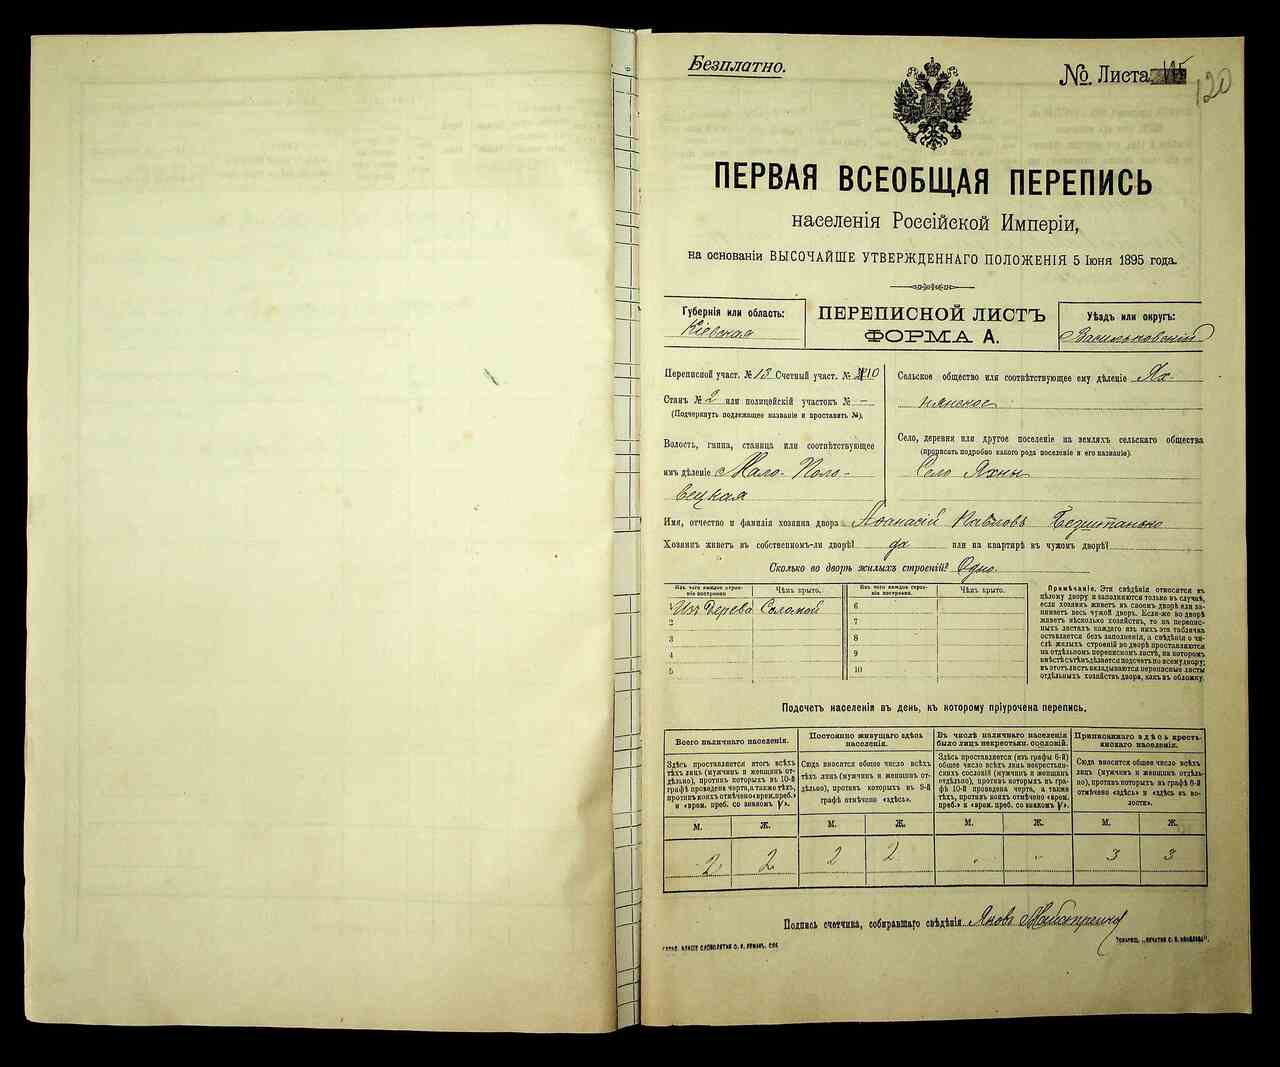 Безплатно.
№ Листа
120
ПЕРВАЯ ВСЕОБЩАЯ ПЕРЕПИСЬ
населенія Россійской Имперіи,
на основаніи ВЫСОЧАЙШЕ УТВЕРЖДЕННАГО ПОЛОЖЕНІЯ 5 Іюня 1895 года.
Губернія или область:
Кіевская
ПЕРЕПИСНОЙ ЛИСТЪ
ФОРМА А.
Уѣздъ или округъ:
Васильковскій
Переписной участ. № 13 Счетный участ. № 10
Станъ № 2 или полицейскій участокъ № –
(Подчеркнуть подлежащее названіе и проставить №).
Волость, гмина, станица или соотвѣтствующее
имъ дѣленіе Мало-Поло-
вецкая
Сельское общество или соотвѣтствующее ему дѣленіе Ях-
нянское
Село, деревня или другое поселеніе на земляхъ сельскаго общества
(прописать подробно какого рода поселеніе и его названіе).
Село Яхны
Имя, отчество и фамилія хозяина двора Аѳанасій Павловъ
Хозяинъ живетъ въ собственномъ-ли дворѣ? да или на квартирѣ въ чужомъ дворѣ?
Сколько во дворѣ жилыхъ строеній? Одно.
Изъ чего каждое строе-
ніе построено
Чѣмъ крыто.
1 Изъ дерева Соломой
2
3
4
5
Изъ чего каждое строе-
ніе построено
Чѣмъ крыто.
6
7
8
9
10
Примѣчаніе. Эти свѣдѣнія относятся къ
цѣлому двору и заполняются только въ случаѣ,
если хозяинъ живетъ въ своемъ дворѣ или за-
нимаетъ весь чужой дворъ. Если-же во дворѣ
живетъ нѣсколько хозяйствъ, то на перепис-
ныхъ листахъ каждаго изъ нихъ эта табличка
оставляется безъ заполненія, а свѣдѣнія о чи-
слѣ жилыхъ строеній во дворѣ проставляются
на отдѣльномъ переписномъ листѣ, на которомъ
вмѣстѣ съ тѣмъ дѣлается подсчетъ по всему двору;
въ этотъ листъ вкладываются переписные листы
отдѣльныхъ хозяйствъ двора, какъ въ обложку.
Подсчетъ населенія въ день, къ которому пріурочена перепись.
Всего наличнаго населенія.
Здѣсь проставляется итогъ всѣхъ
тѣхъ лицъ (мужчинъ и женщинъ от-
дѣльно), противъ которыхъ въ 10-й
графѣ проведена черта, а также тѣхъ,
противъ коихъ отмѣчено «врем. преб.»
и «врем. преб. со знакомъ V».
Постоянно живущаго здѣсь
населенія.
Сюда вносится общее число всѣхъ
тѣхъ лицъ (мужчинъ и женщинъ от-
дѣльно), противъ которыхъ въ 9-й
графѣ отмѣчено «здѣсь».
Въ числѣ наличнаго населенія
было лицъ некрестьян. сословій.
Здѣсь проставляется (изъ графы 6-й)
общее число всѣхъ лицъ некрестьян-
скихъ сословій (мужчинъ и женщинъ
отдѣльно), противъ которыхъ въ гра-
фѣ 10-й проведена черта, а также
тѣхъ, противъ коихъ отмѣчено «врем.
преб.» и «врем. преб. со знакомъ V».
Приписаннаго здѣсь кресть-
янскаго населенія.
Сюда вносится общее число всѣхъ
лицъ (мужчинъ и женщинъ отдѣль-
но), противъ которыхъ въ графѣ 8-й
отмѣчено «здѣсь» и «здѣсь въ во-
лости».
М. Ж. М. Ж. М. Ж. М. Ж.
2 2 2 2 . . 3 3
Подпись счетчика, собиравшаго свѣдѣнія Яковъ